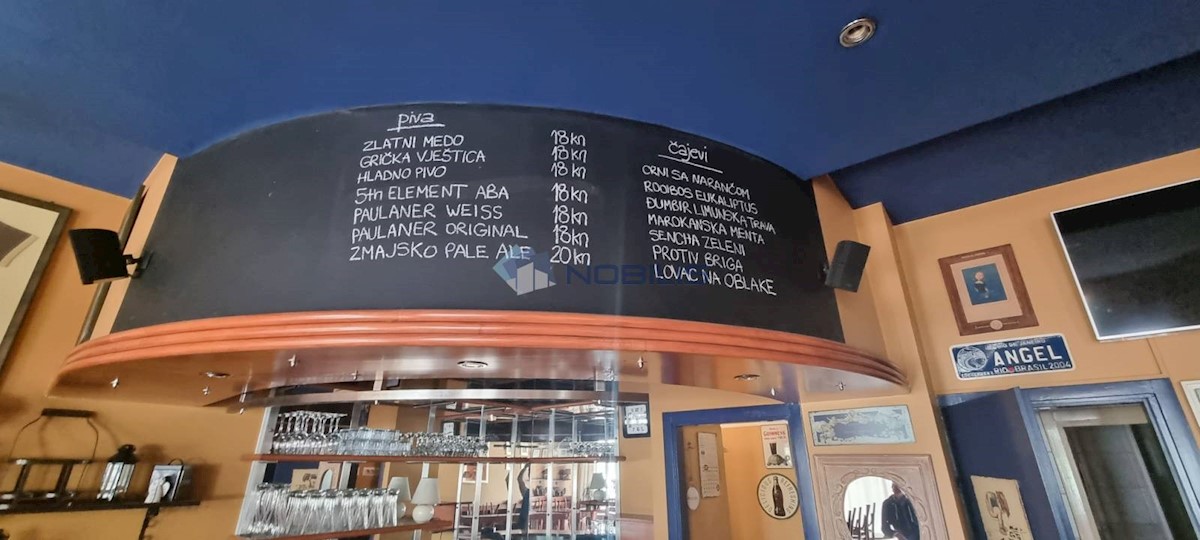 piva
ZLATNI MEDO 18kn
GRIČKA VJEŠTICA 18kn
HLADNO PIVO 18kn
5th ELEMENT ABA 18kn
PAULANER WEISS 18kn
PAULANER ORIGINAL 18kn
ZMAJSKO PALE ALE 20kn
čajevi
CRNI SA NARANČOM
ROOIBOS EUKALIPTUS
ĐUMBIR LIMUNSKA TRAVA
MAROKANSKA MENTA
SENCHA ZELENI
PROTIV BRIGA
LOVAC NA OBLAKE
NOBILIS
ANGEL
RIO BRASIL 2004
GUINNESS